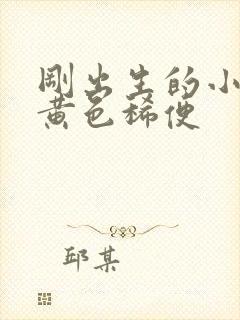 刚出生的小
黄色稀便
邱某